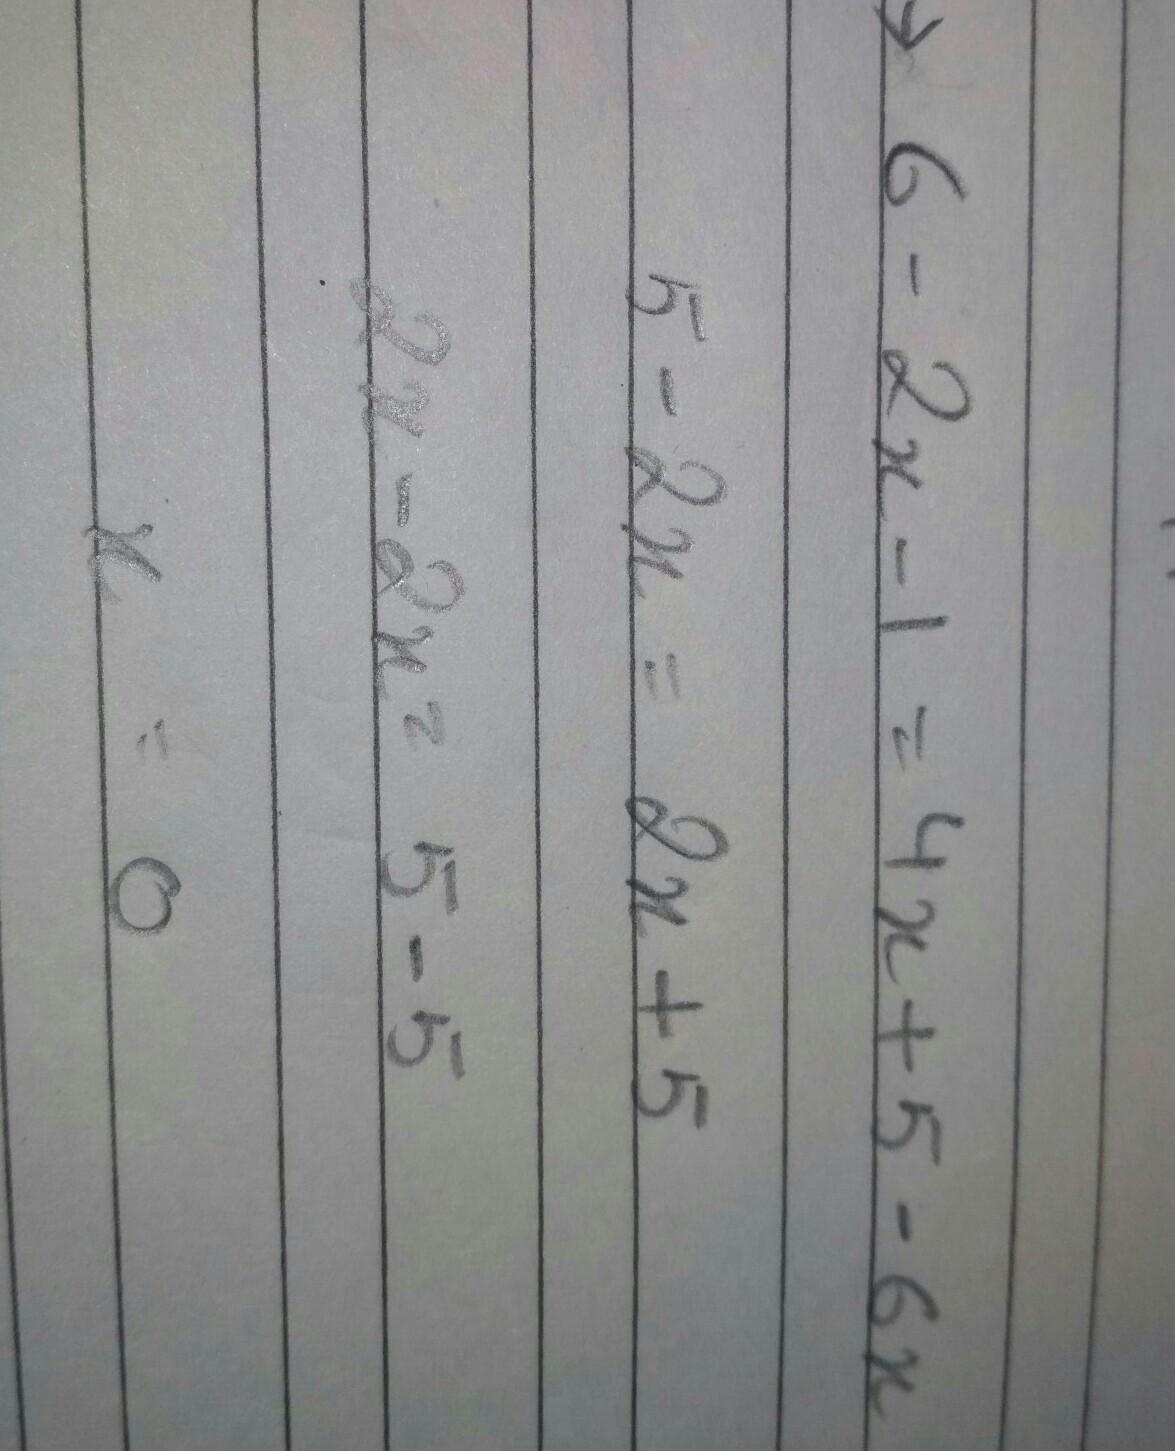 → 6 - 2x - 1 = 4x + 5 - 6x
5 - 2x = 2x + 5
2x - 2x = 5 - 5
x = 0